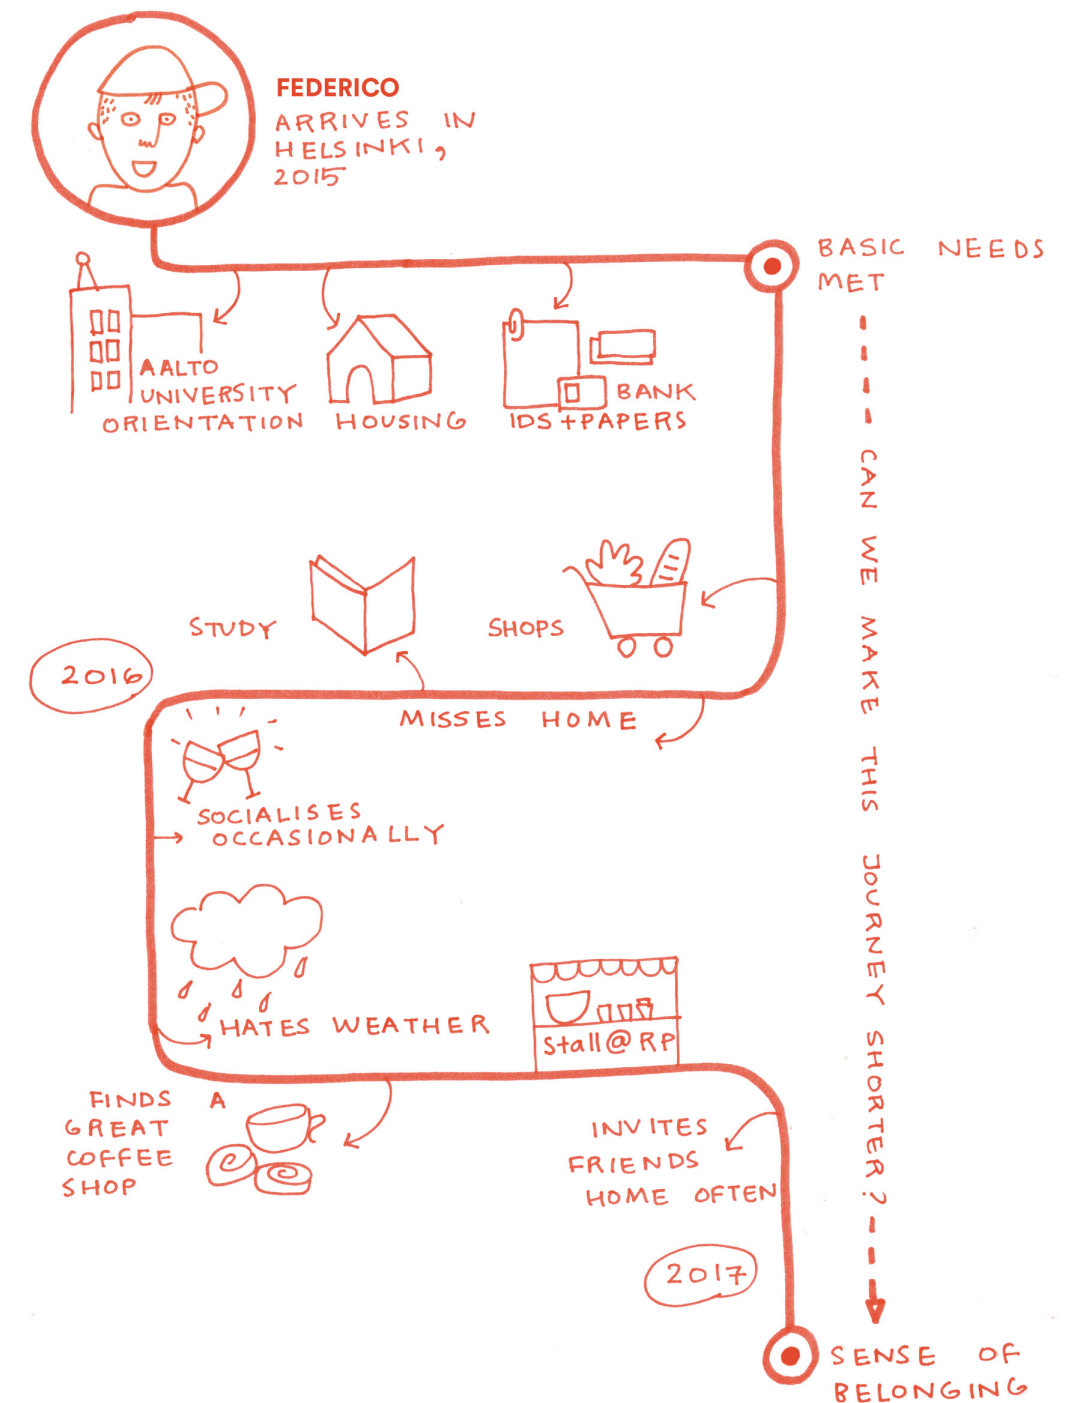 FEDERICO
ARRIVES IN
HELSINKI,
2015
BASIC NEEDS
MET
AALTO
UNIVERSITY
ORIENTATION
HOUSING
BANK
IDS + PAPERS
CAN WE MAKE THIS JOURNEY SHORTER?
STUDY
SHOPS
2016
MISSES HOME
SOCIALISES
OCCASIONALLY
HATES WEATHER
Stall@RP
FINDS A
GREAT
COFFEE
SHOP
INVITES
FRIENDS
HOME OFTEN
2017
SENSE OF
BELONGING